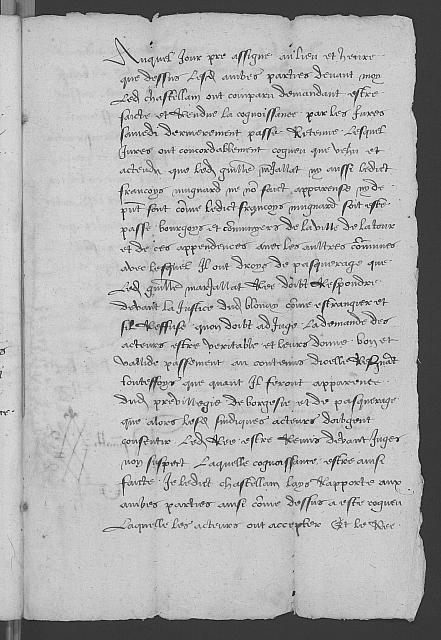 Auquel Jour pre assigne au lieu et heure
que dessus Lesd ambes parties devant moy
Led chastellain ont comparu demandant estre
faicte et Rendue la cognoissance par les Jures
samedi dernierement passe Retenue Lesquel
Jures ont concordablement cogneu que vehu et
actendu que led guille marJallat ny aussi ledict
francoys mugnard ne no font apparense ny de
pnt sont come ledict francoys mugnard soit este
passe bourgoys et comunyers de la ville de la tour
et de ces appendences avec les aultres comunes
avec lesquel Il ont droys de pasquerage que
Led guille marJallat Ree doibt Respondre
devant la Justice dud blonay come estrangier et
sil Reffuse quon doibt adJuge La demande des
acteurs estre veritable et leurs donne bon et
vallide passement au contenus dicelle
toutesfoys que quant Il feront apparence
dud previllegie de borgesie et de pasquerage
que alors lesd sindiques acteurs doibgent
consentir Led Ree estre Remis devant Juges
non suspect Laquelle cognoissance estre ainsi
faicte Je ledict chastellain lays Rapporte aux
ambes parties ainsi come dessus a este cogneu
Laquelle les acteurs ont accepter Et le Ree